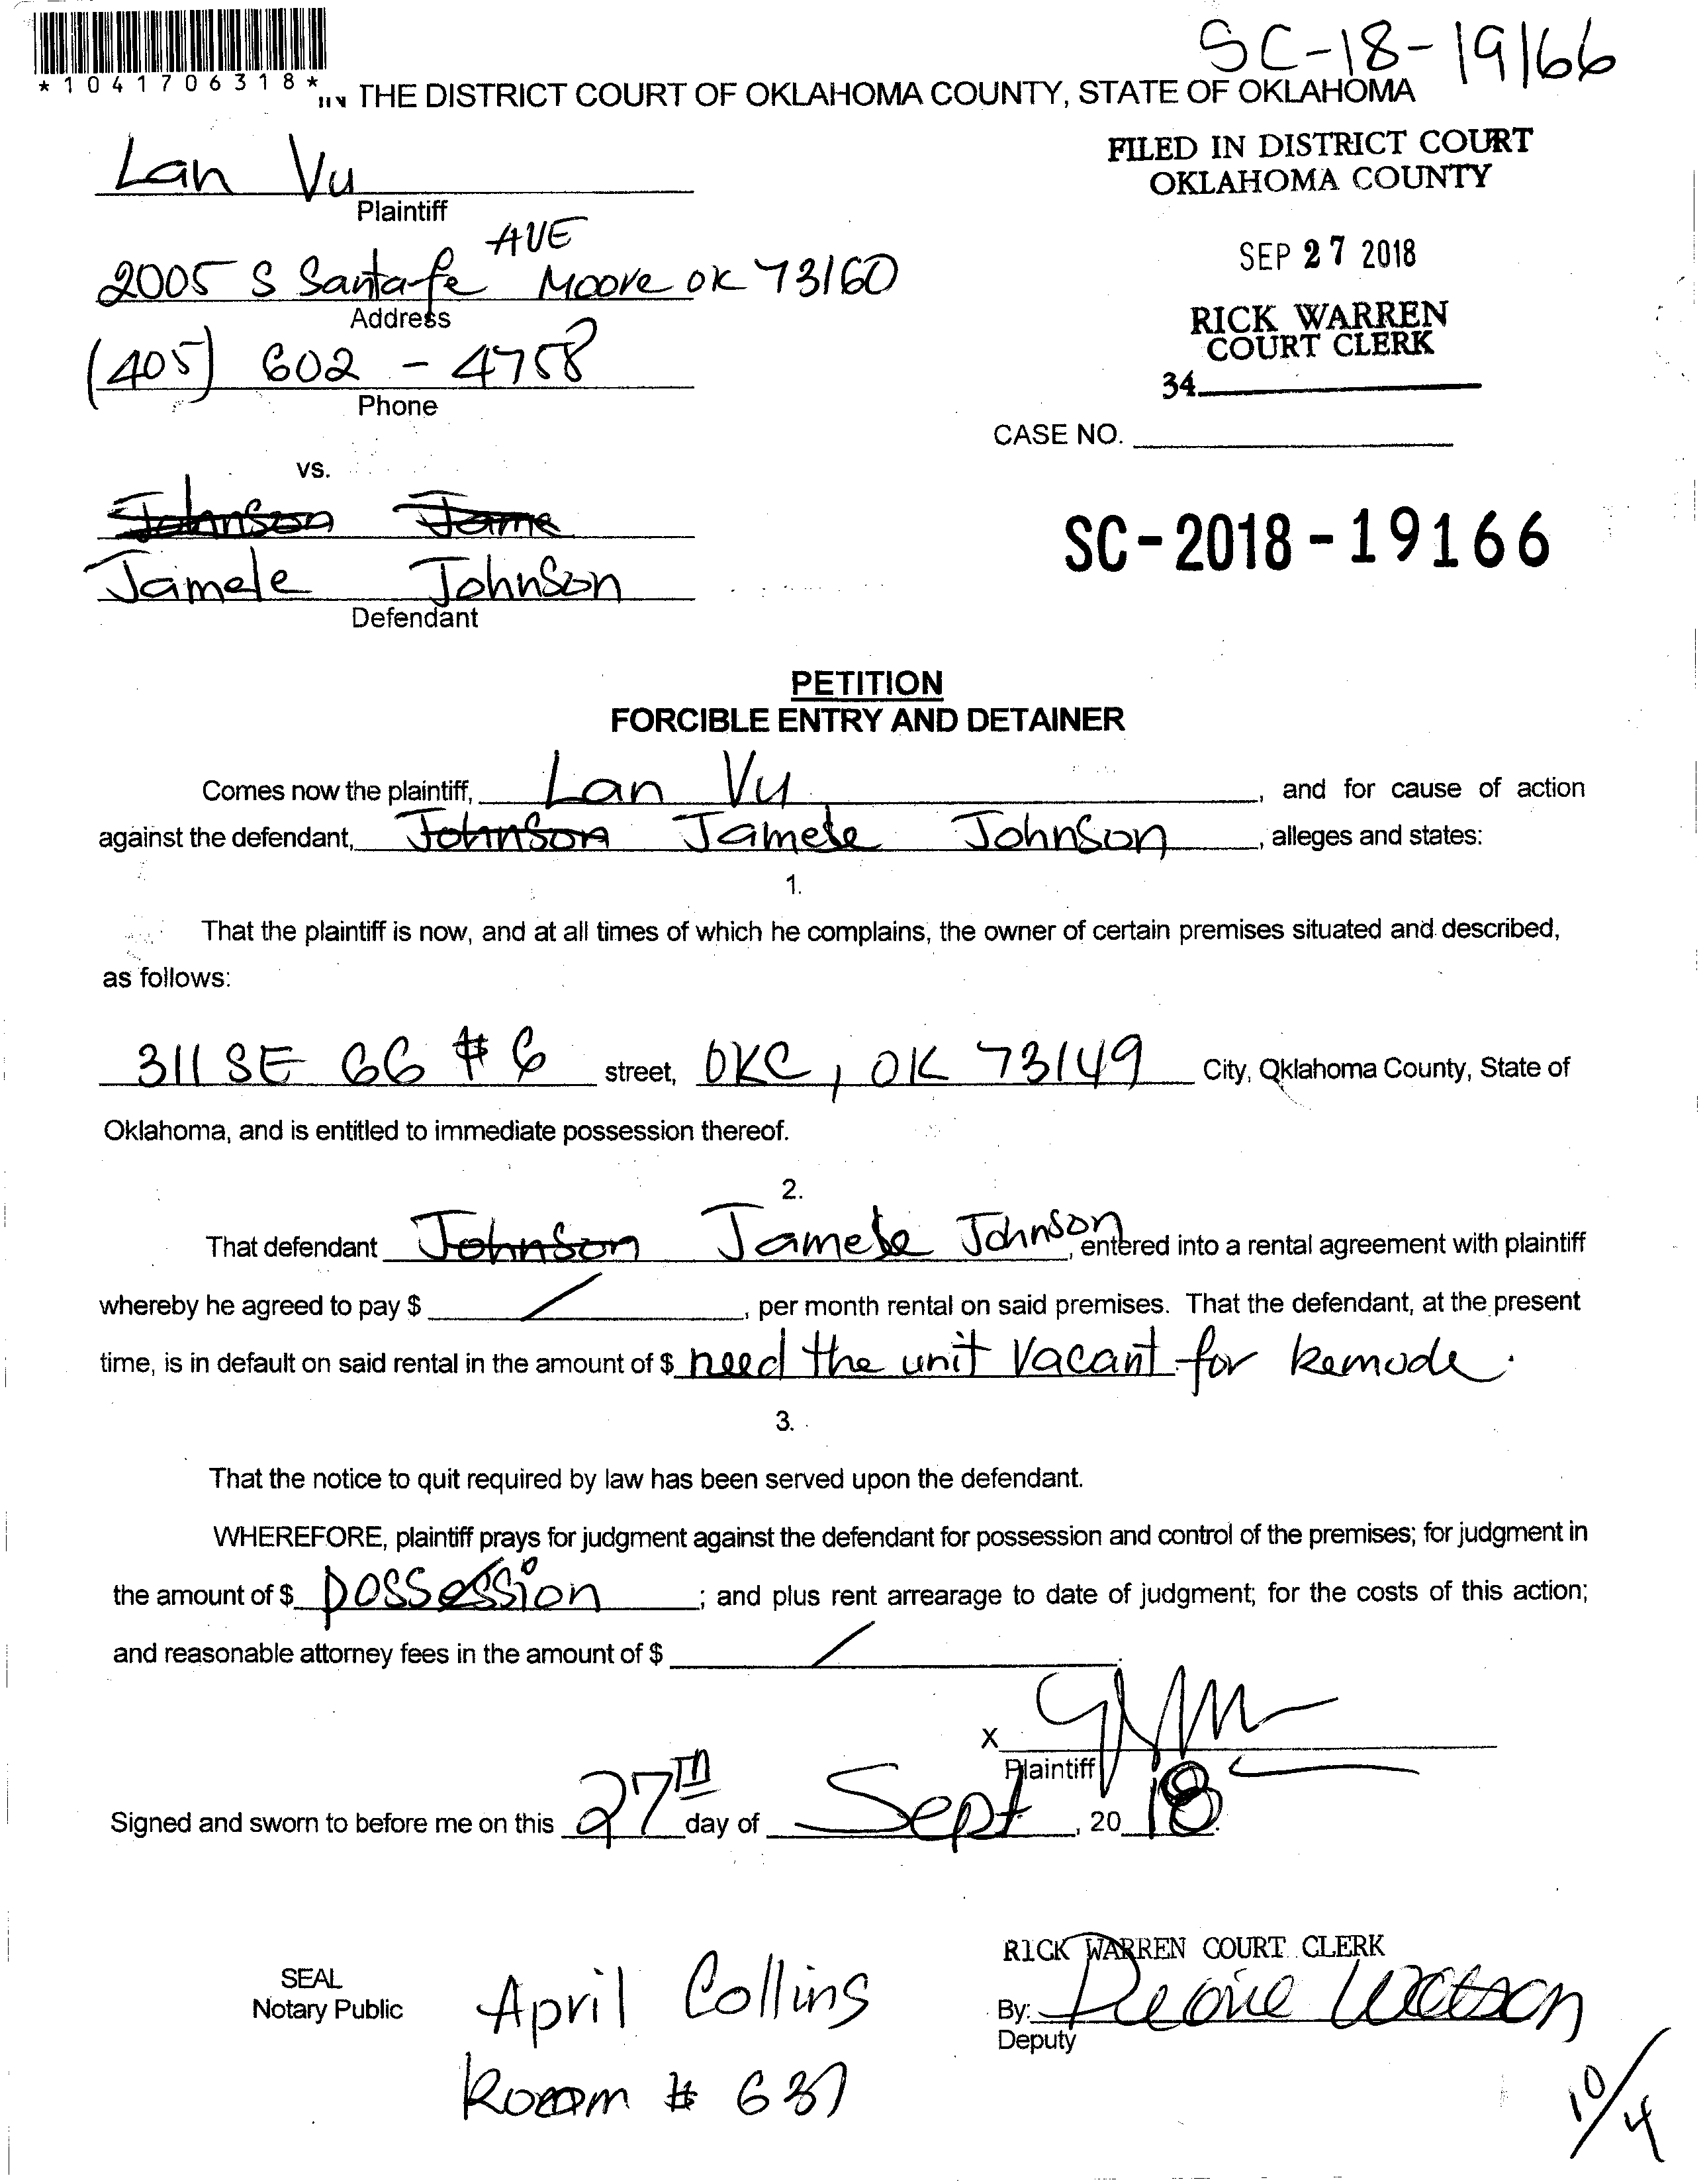 SC-18-19166
*1041706318*
IN THE DISTRICT COURT OF OKLAHOMA COUNTY, STATE OF OKLAHOMA
Lan Vu
Plaintiff
FILED IN DISTRICT COURT
OKLAHOMA COUNTY
AVE
2005 S Santa fe Moore OK 73160
Address
SEP 27 2018
(405) 602 - 4758
Phone
RICK WARREN
COURT CLERK
34
CASE NO.
vs.
Johnson Jame
Jamele Johnson
Defendant
SC-2018-19166
PETITION
FORCIBLE ENTRY AND DETAINER
Comes now the plaintiff, Lan Vu, and for cause of action
against the defendant, Johnson Jamele Johnson, alleges and states:
1.
That the plaintiff is now, and at all times of which he complains, the owner of certain premises situated and described,
as follows:
311 SE 66 # 6 street, OKC, OK 73149 City, Oklahoma County, State of
Oklahoma, and is entitled to immediate possession thereof.
2.
That defendant Johnson Jamele Johnson, entered into a rental agreement with plaintiff
whereby he agreed to pay $ /, per month rental on said premises. That the defendant, at the present
time, is in default on said rental in the amount of $ need the unit vacant for Remode.
3.
That the notice to quit required by law has been served upon the defendant.
WHEREFORE, plaintiff prays for judgment against the defendant for possession and control of the premises; for judgment in
the amount of $ possession; and plus rent arrearage to date of judgment; for the costs of this action;
and reasonable attorney fees in the amount of $ /.
X
Plaintiff
Signed and sworn to before me on this 27TH day of Sept, 20 18.
SEAL
Notary Public
April Collins
Room # 637
RICK WARREN COURT CLERK
By: Watson
Deputy
10/4